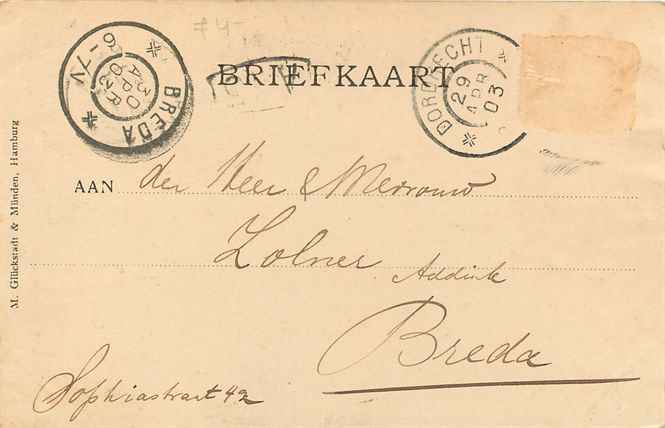 # 4-
BRIEFKAART
BREDA
30 APR 03
6-7V
DORDRECHT
29 APR 03
AAN der Heer & Mevrouw
Zolner Addink
Breda
Sophiastraat 42
M. Glückstadt & Münden, Hamburg